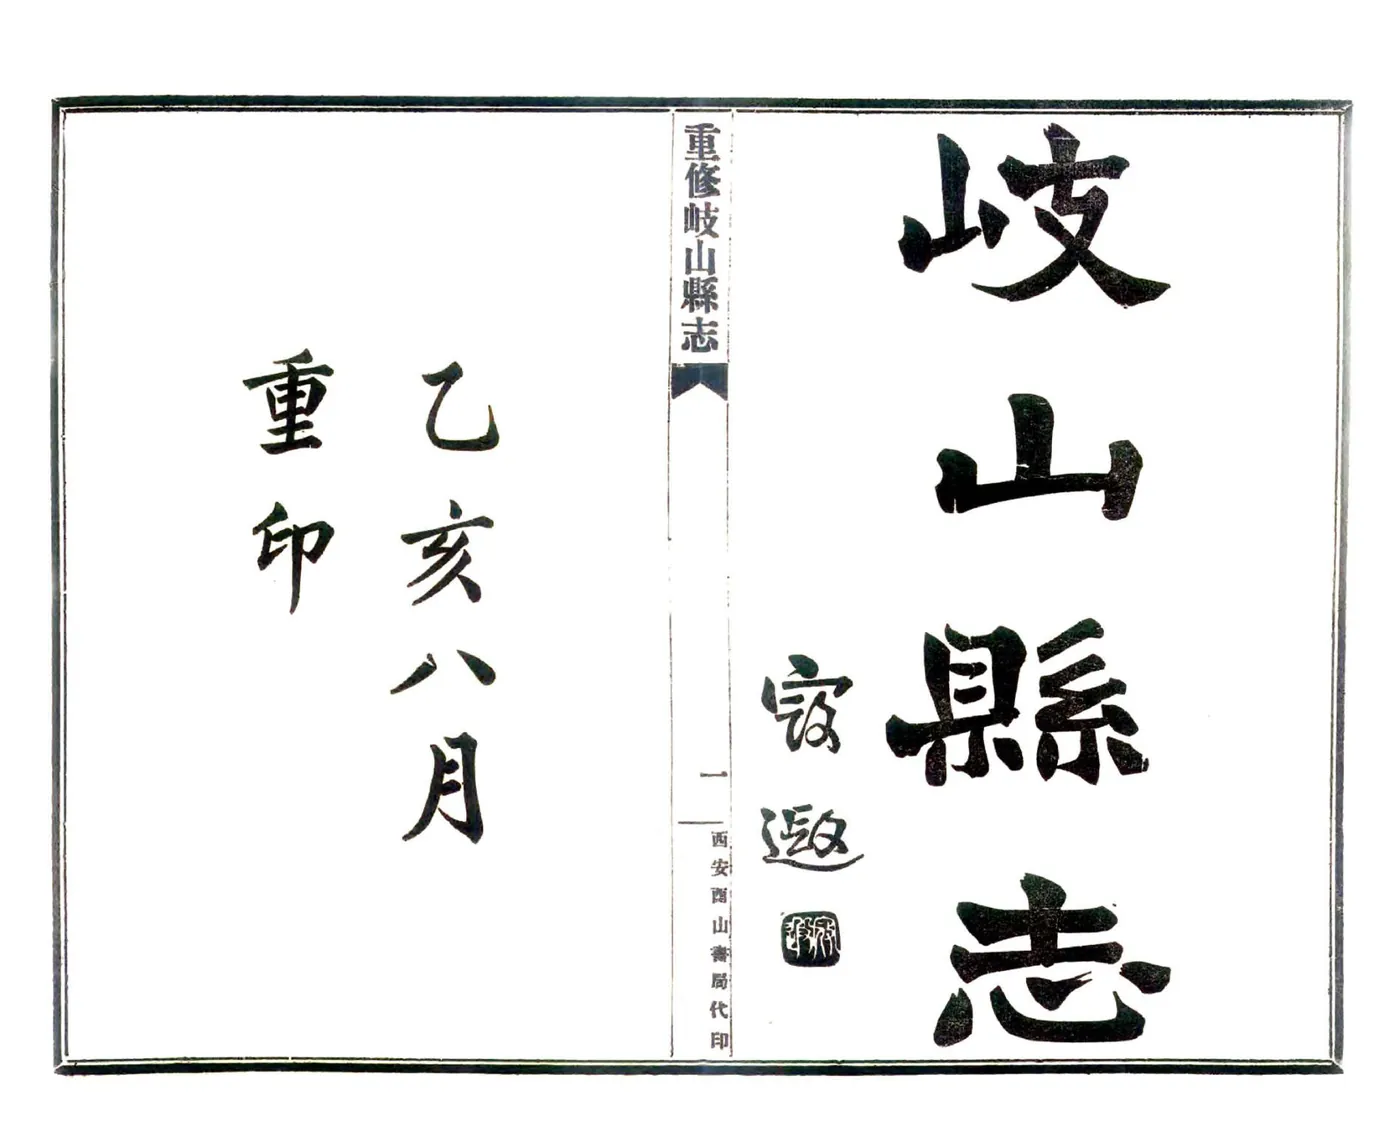 岐山縣志
寇遐
重修岐山縣志
一
西安酉山書局代印
乙亥八月
重印